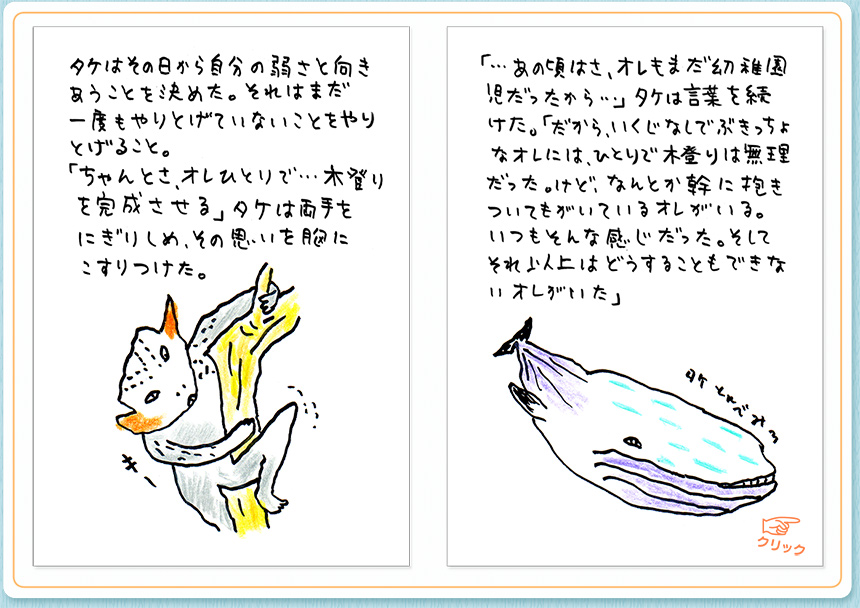 タケはその日から自分の弱さと向き
あうことを決めた。それはまだ
一度もやりとげていないことをやり
とげること。
「ちゃんとさ、オレひとりで…木登り
を完成させる」タケは両手を
にぎりしめ、その思いを胸に
こすりつけた。
きー
「…あの頃はさ、オレもまだ幼稚園
児だったから…」タケは言葉を続
けた。「だから、いくじなしでぶきっちょ
なオレには、ひとりで木登りは無理
だった。けど、なんとか幹に抱き
ついてもがいているオレがいる。
いつもそんな感じだった。そして
それ以上はどうすることもできな
いオレがいた」
タケ とんべみろ
クリック